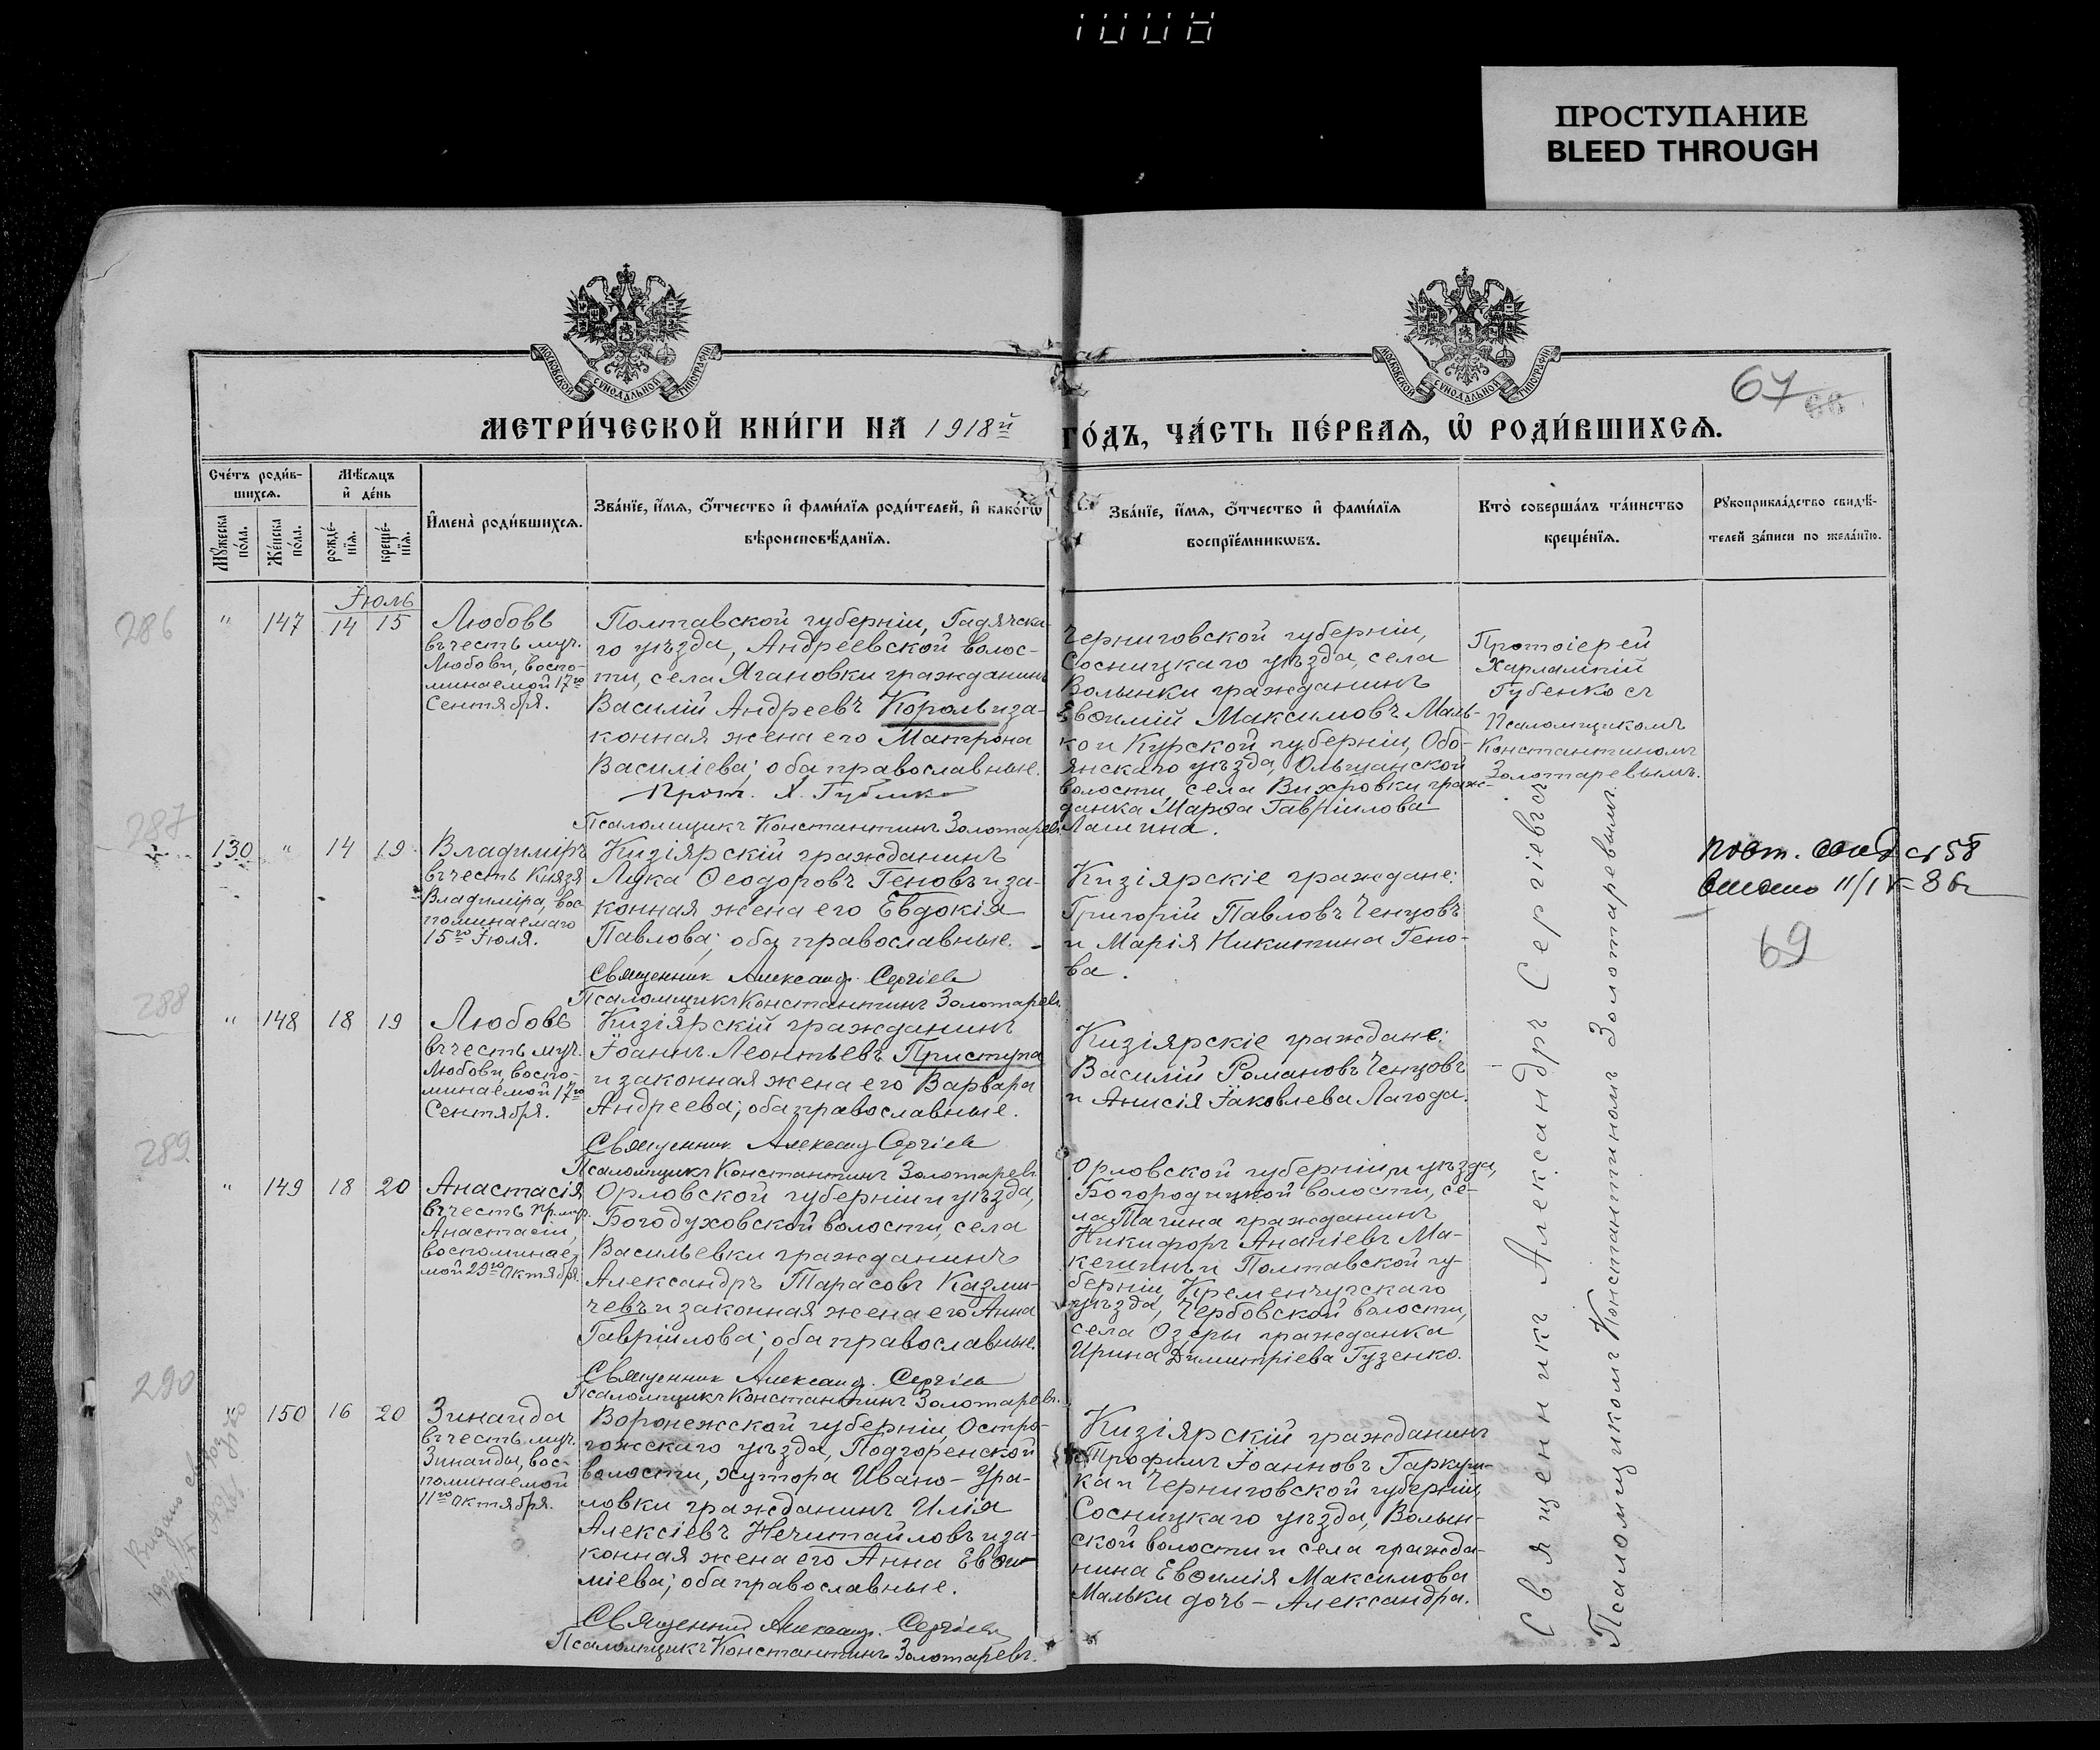 ПРОСТУПАНИЕ
BLEED THROUGH
МОСКОВСКОЙ СѴНОДАЛЬНОЙ ТИПОГРАФІИ
МОСКОВСКОЙ СѴНОДАЛЬНОЙ ТИПОГРАФІИ
67
МЕТРИ́ЧЕСКОЙ КНИ́ГИ НА 1918й
ГО́ДЪ, ЧА́СТЬ ПЕ́РВАѦ, Ѡ РОДИ́ВШИХСѦ.
Сче́тъ роди́в-
шихсѧ.
Мꙋ́жеска по́ла.
Же́нска по́ла.
Мѣ́сѧцъ
и де́нь
рожде́-
нїѧ.
креще́-
нїѧ.
Имена̀ роди́вшихсѧ.
Зва́нїе, и́мѧ, ѻ́тчество и фами́лїѧ роди́телей, и како́гѡ
вѣроисповѣ́данїѧ.
Зва́нїе, и́мѧ, ѻ́тчество и фами́лїѧ
воспрїе́мникѡвъ.
Кто̀ соверша́лъ та́инство
креще́нїѧ.
Рꙋкоприкла́дство свидѣ́-
телей за́писи по жела́нїю.
Іюль
286
" 147 14 15
Любовь
въ честь муч.
Любови, воспо-
минаемой 17го
Сентября.
Полтавской губерніи, Гадячска-
го уѣзда, Андреевской волос-
ти, села Ягановки гражданинъ
Василій Андреевъ Король и за-
конная жена его Матрона
Василіева; оба православные.
Прот. Х. Губенко
Псаломщикъ Константинъ Золотаревъ.
Черниговской губерніи,
Сосницкаго уѣзда, села
Волынки гражданинъ
Евѳимій Максимовъ Маль-
ко и Курской губерніи, Обо-
янскаго уѣзда, Ольшанской
волости, села Вихровки граж-
данка Марѳа Гавріилова
Лашина.
Протоіерей
Харлампій
Губенко съ
Псаломщикомъ
Константиномъ
Золотаревымъ.
287
130 " 14 19
Владиміръ
въ честь Князя
Владиміра, вос-
поминаемаго
15го Іюля.
Кизіярскій гражданинъ
Лука Ѳеодоровъ Геновъ и за-
конная жена его Евдокія
Павлова; оба православные.
Священник Александр Сергіев
Псаломщикъ Константинъ Золотаревъ.
Кизіярскіе граждане:
Григорій Павловъ Ченцовъ
и Марія Никитина Гено-
ва.
11/IV-86г
69
288
" 148 18 19
Любовь
въ честь муч.
Любови, воспо-
минаемой 17го
Сентября.
Кизіярскій гражданинъ
Іоаннъ Леонтьевъ Приступа
и законная жена его Варвара
Андреева; оба православные.
Священник Александр Сергіев
Псаломщикъ Константинъ Золотаревъ.
Кизіярскіе граждане:
Василій Романовъ Ченцовъ
и Анисія Іаковлева Лагода.
289
" 149 18 20
Анастасія
въ честь пр.муч.
Анастасіи,
воспоминае-
мой 29го Октября.
Орловской губерніи и уѣзда,
Богодуховской волости, села
Васильевки гражданинъ
Александръ Тарасовъ Казми-
чевъ и законная жена его Анна
Гавріилова; оба православные.
Священник Александр Сергіев
Псаломщикъ Константинъ Золотаревъ.
Орловской губерніи и уѣзда,
Богородицкой волости, се-
ла Тагина гражданинъ
Никифоръ Ананіевъ Ма-
кешинъ и Полтавской гу-
берніи, Кременчугскаго
уѣзда, Чербовской волости,
села Озеры гражданка
Ирина Димитріева Гузенко.
290
" 150 16 20
Зинаида
въ честь муч.
Зинаиды, вос-
поминаемой
11го Октября.
Воронежской губерніи, Остро-
гожскаго уѣзда, Подгоренской
волости, хутора Ивано-
гражданинъ Илія
Алексіевъ Нечитайловъ и за-
конная жена его Анна Евѳи-
міева; оба православные.
Священник Александр Сергіев
Псаломщикъ Константинъ Золотаревъ.
Кизіярскій гражданинъ
Трофимъ Іоанновъ Гаркуш-
ка и Черниговской губерніи,
Сосницкаго уѣзда, Волын-
ской волости и села гражда-
нина Евѳимія Максимова
Мальки дочь - Александра.
Священникъ Александръ Сергіевъ съ
Псаломщикомъ Константиномъ Золотаревымъ.